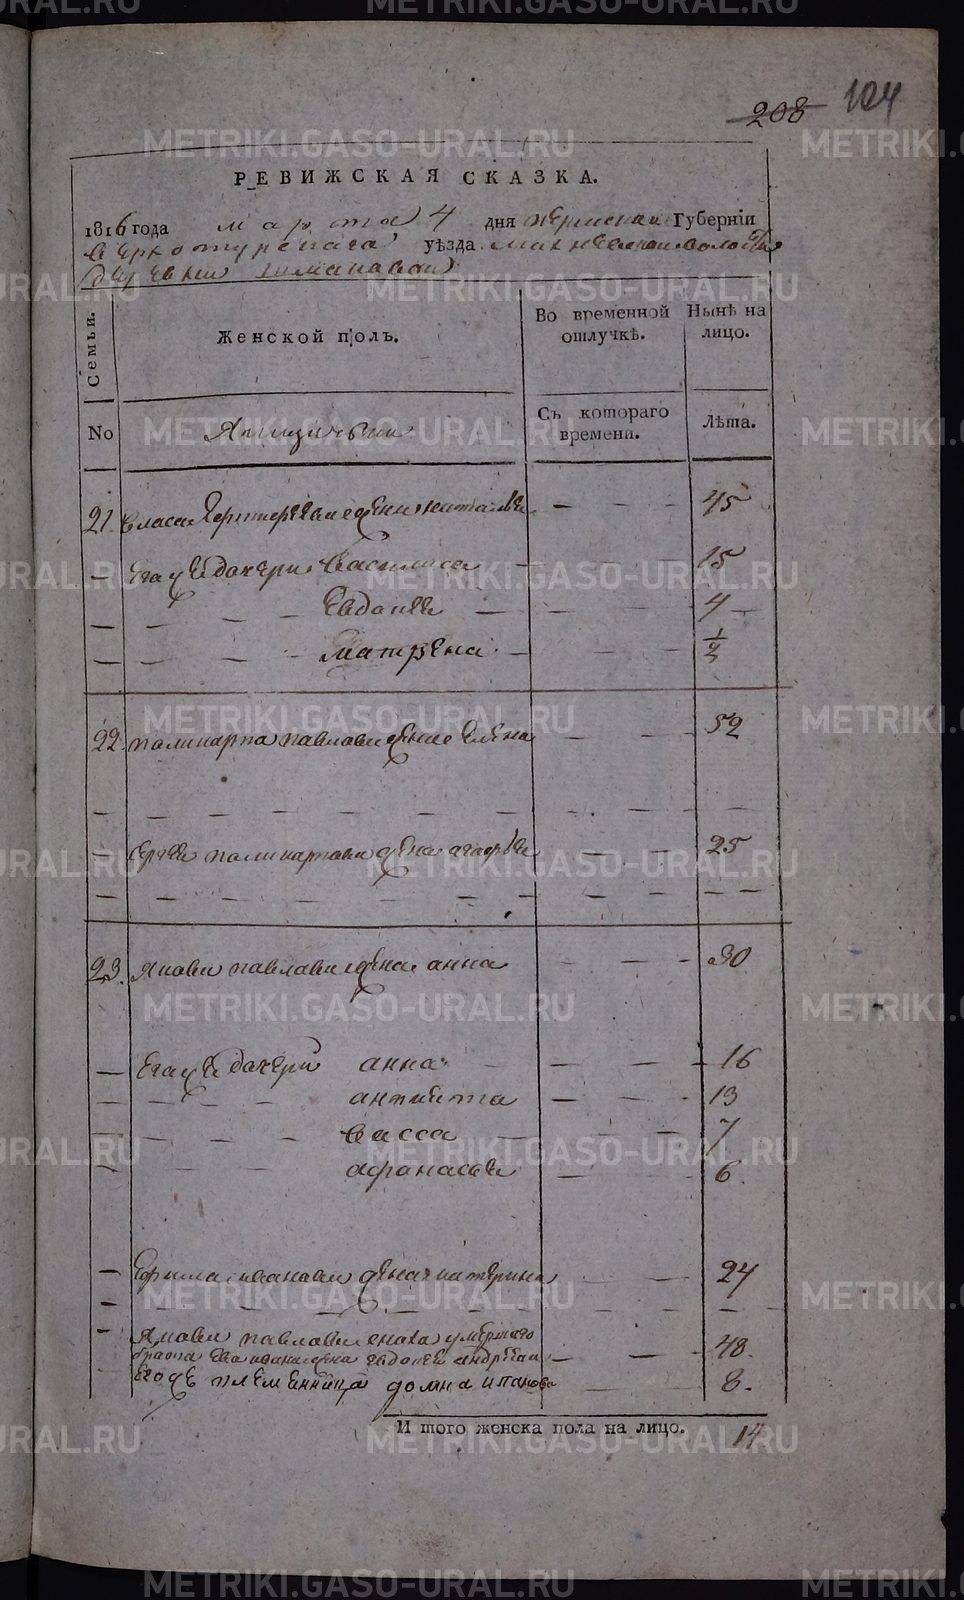 208 104
РЕВИЖСКАЯ СКАЗКА.
1816 года марта 4 дня пермскаи Губерніи
верхотурскага уѣзда махневскаи волости
деревни
Семьи.
Женской полъ.
Во временной отлучкѣ.
Нынѣ на лицо.
No
Съ котораго времени.
Лѣта.
21. власа жена наталья — — 45
— Ега же дочери василиса — — 15
— — — — Евдокея — — — 4
— — — — Матрена — — — 1/2
22. паликарпа павлава жена елена — — 52
— сергея паликарпава жена агафья — — 25
23. якава павлава жена анна — — 30
— Ега же дочери анна — — 16
— — — — — 13
— — — — васса — — — 7
— — — — афанасья — — 6
— Ефима иванава жена катерина — — 24
— Якава павлава умершаго
брата ивана жена евдокея андреева — — 48.
Егоже племенница домна — 8.
И того женска пола на лицо. 14
METRIKI.GASO-URAL.RU